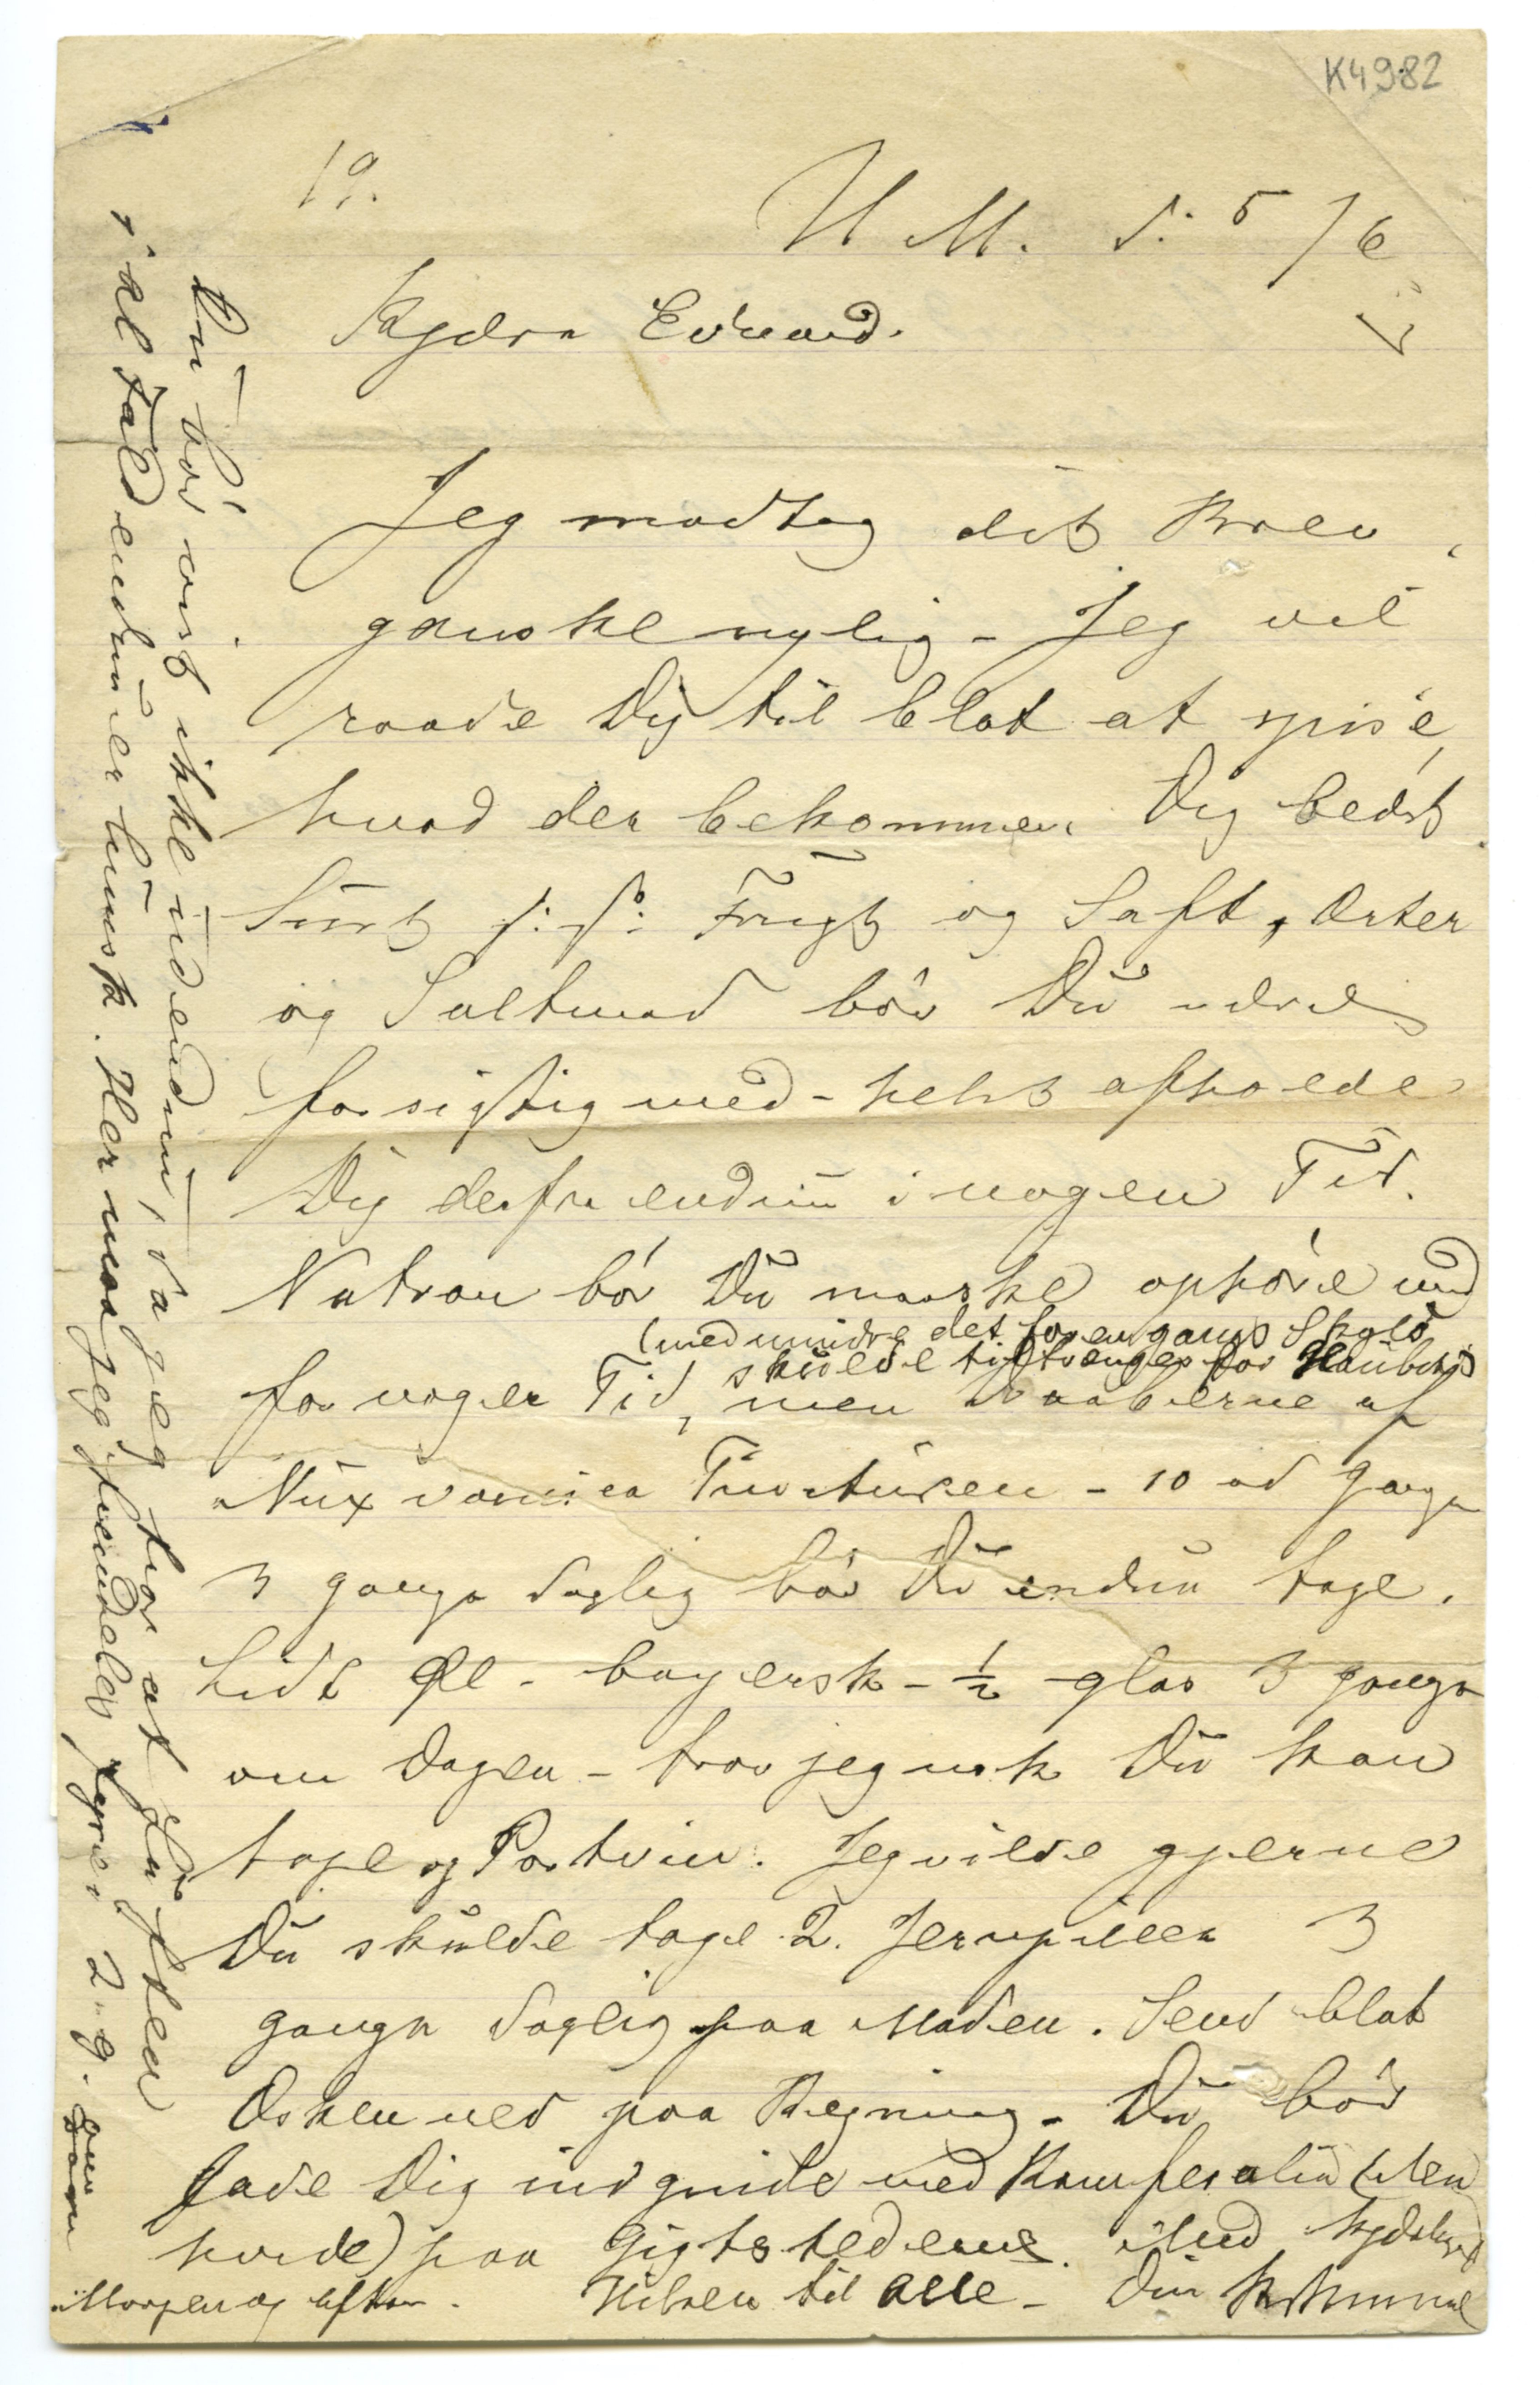 K4982
19.
H M. d. 5/6
Kjære Edvard.
Jeg modtog dit Brev
ganske nylig – Jeg vil
raade Dig til blot at spise
hvad der bekommer Dig bedst
Surt s: s: Frugt og Saft, Erter
og Saltmad bör Du være
forsigtig med – helst afholde
Dig derfra endnu i nogen Tid.
Natron bör Du maaske ophöre med
(medmindre det for en gangs Skyld
skulde tiltrænges for Halsbrynd
for nogen Tid, men Draaberne af
Nux vomica Tincturen – 10 ad Gangen
3 gange daglig bör Du endnu tage.
Lidt Øl – bayersk – ½ glas 3 gange
om Dagen – tror jeg nok Du kan
tage og Portvin. Jeg vilde gjerne
Du skulde tage 2. Jernpiller 3
gange daglig paa Maden. Send blot
Æsken ned paa Regning – Du bör
lade Dig indgnide med Kamferolie (den
hvide) paa Gigtstederne. Med kjærlig
Morgen og Aften. Hilsen til alle – Din
Du bör vist ikke ud endnu, da jeg tror at Luften
i al Fald endnu er barsk. Her maa jeg fremdeles fyre i 2 g. om Dagen